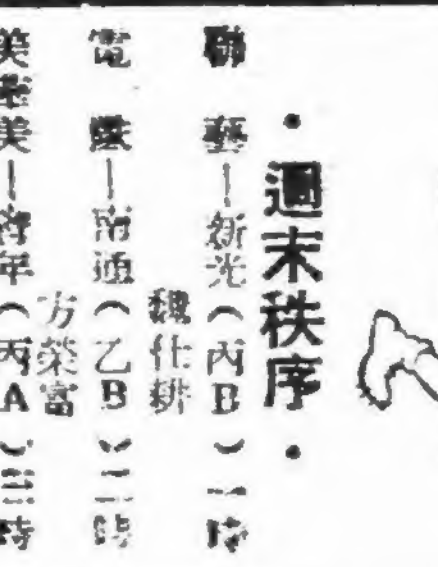 ・週末秩序・
聯藝—新光(丙B)一時
魏仕耕
電燈—南通(乙B)二時
方榮富
美華美—青年(丙A)三時